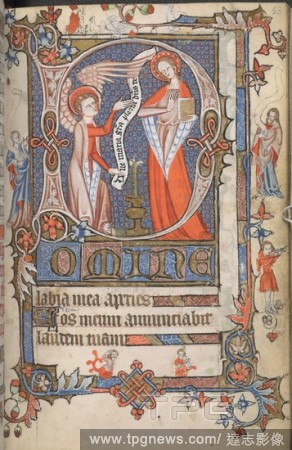 Aue maria gra plena dns te
DOMINE
labia mea apries
Et os meum annunciabit
laudem tuam
TPG
www.tpgnews.com / 達志影像